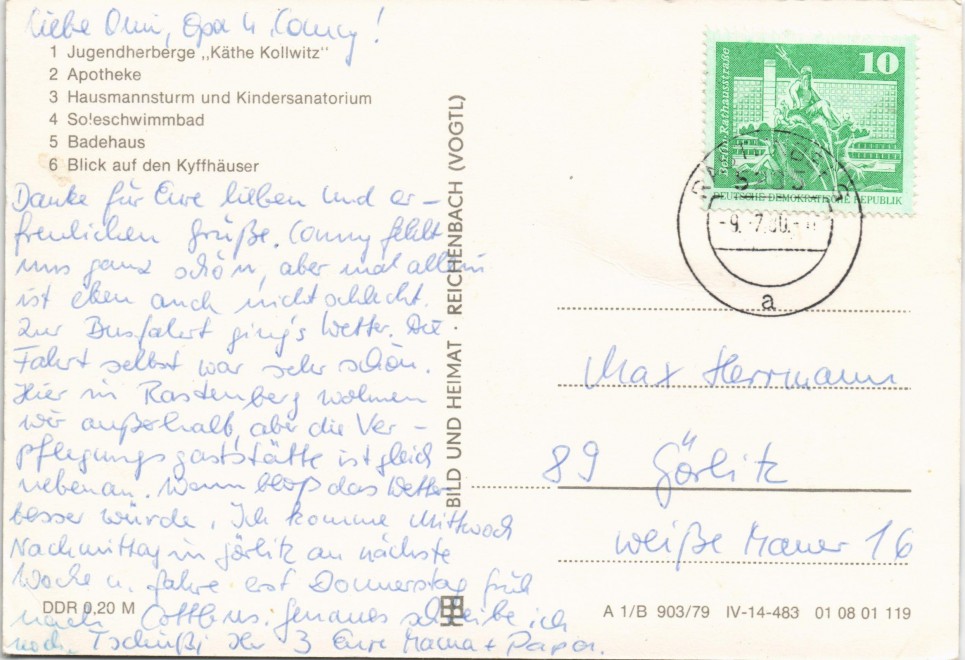 Liebe Omi, Opa u. Conny!
1 Jugendherberge „Käthe Kollwitz"
2 Apotheke
3 Hausmannsturm und Kindersanatorium
4 Soleschwimmbad
5 Badehaus
6 Blick auf den Kyffhäuser
Danke für Eure lieben und er-
freulichen Grüße. Conny fehlt
uns ganz schön, aber mal allein
ist eben auch nicht schlecht.
Zur Busfahrt ging's Wetter. Die
Fahrt selbst war sehr schön.
Hier in Rastenberg wohnen
wir außerhalb, aber die Ver-
pflegungsgaststätte ist gleich
nebenan. Wenn bloß das Wetter
besser würde. Ich komme Mittwoch
Nachmittag in Görlitz an nächste
Woche u. fahre erst Donnerstag früh
nach Cottbus. Genaues schreibe ich
noch. Tschüßi Ihr 3 Eure Mama + Papa.
DDR 0,20 M
BILD UND HEIMAT · REICHENBACH (VOGTL)
10
Berlin, Rathausstraße
DEUTSCHE DEMOKRATISCHE REPUBLIK
-9.-7.80.-
a
Max Herrmann
89 Görlitz
weiße Mauer 16
A 1/B 903/79 IV-14-483 01 08 01 119